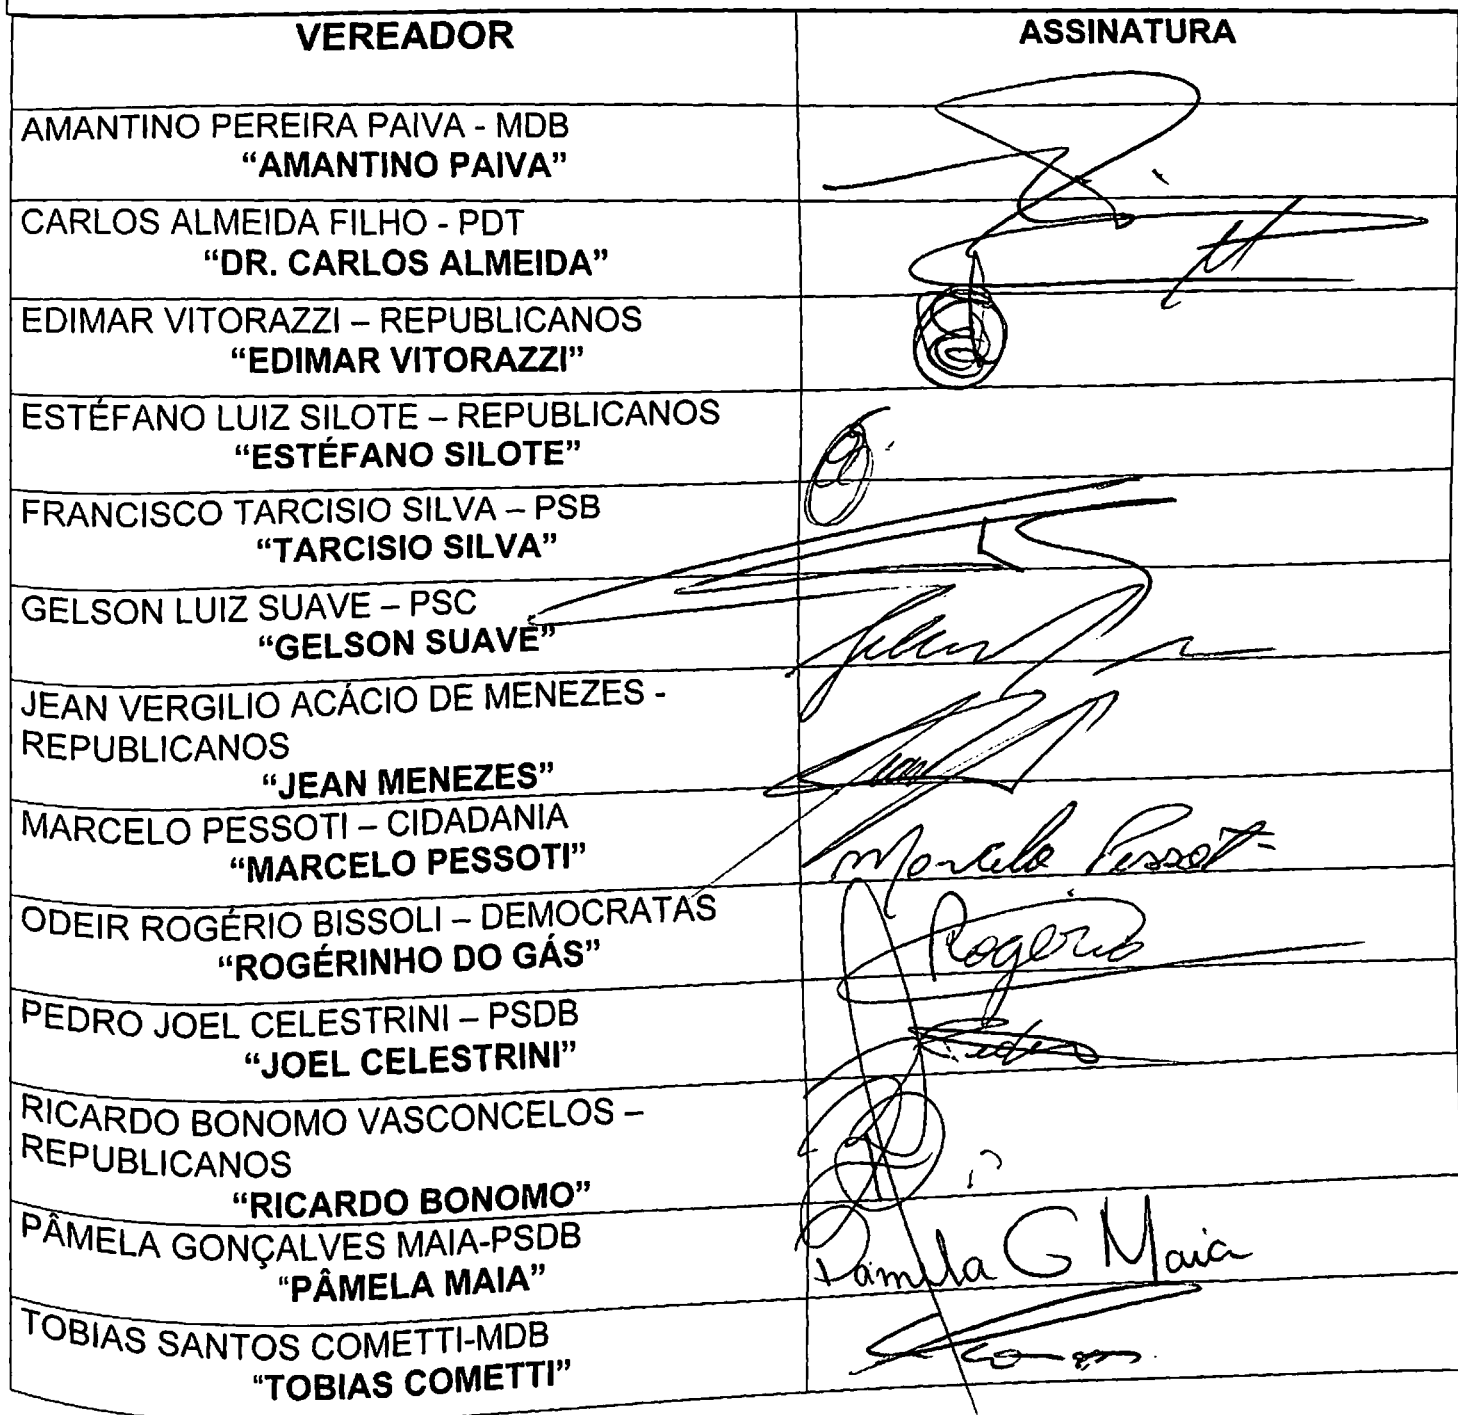 VEREADOR
ASSINATURA
AMANTINO PEREIRA PAIVA - MDB
“AMANTINO PAIVA”
CARLOS ALMEIDA FILHO - PDT
“DR. CARLOS ALMEIDA”
EDIMAR VITORAZZI – REPUBLICANOS
“EDIMAR VITORAZZI”
ESTÉFANO LUIZ SILOTE – REPUBLICANOS
“ESTÉFANO SILOTE”
FRANCISCO TARCISIO SILVA – PSB
“TARCISIO SILVA”
GELSON LUIZ SUAVE – PSC
“GELSON SUAVE”
JEAN VERGILIO ACÁCIO DE MENEZES -
REPUBLICANOS
“JEAN MENEZES”
MARCELO PESSOTI – CIDADANIA
“MARCELO PESSOTI”
Marcelo Pessoti
ODEIR ROGÉRIO BISSOLI – DEMOCRATAS
“ROGÉRINHO DO GÁS”
Rogério
PEDRO JOEL CELESTRINI – PSDB
“JOEL CELESTRINI”
RICARDO BONOMO VASCONCELOS –
REPUBLICANOS
“RICARDO BONOMO”
PÂMELA GONÇALVES MAIA-PSDB
“PÂMELA MAIA”
Pamela G Maia
TOBIAS SANTOS COMETTI-MDB
“TOBIAS COMETTI”